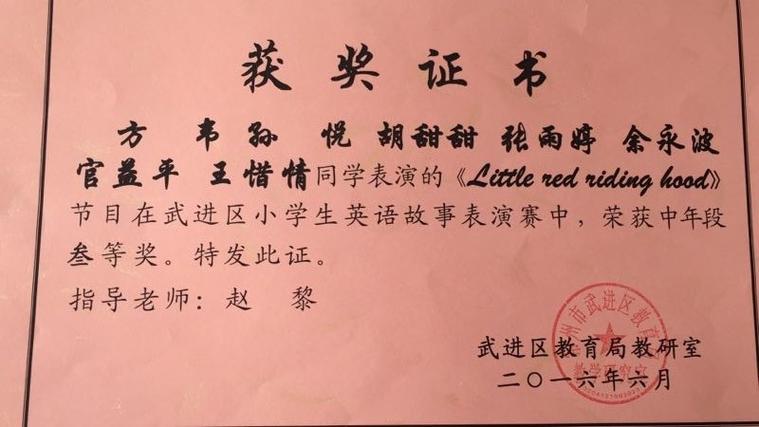 获奖证书
方 韦 孙 悦 胡甜甜 张雨婷 余永波
官益平 王惜情同学表演的《Little red riding hood》
节目在武进区小学生英语故事表演赛中，荣获中年段
叁等奖。特发此证。
指导老师：赵 黎
武进区教育局教研室
二〇一六年六月
州市武进区教育局
教学研究室